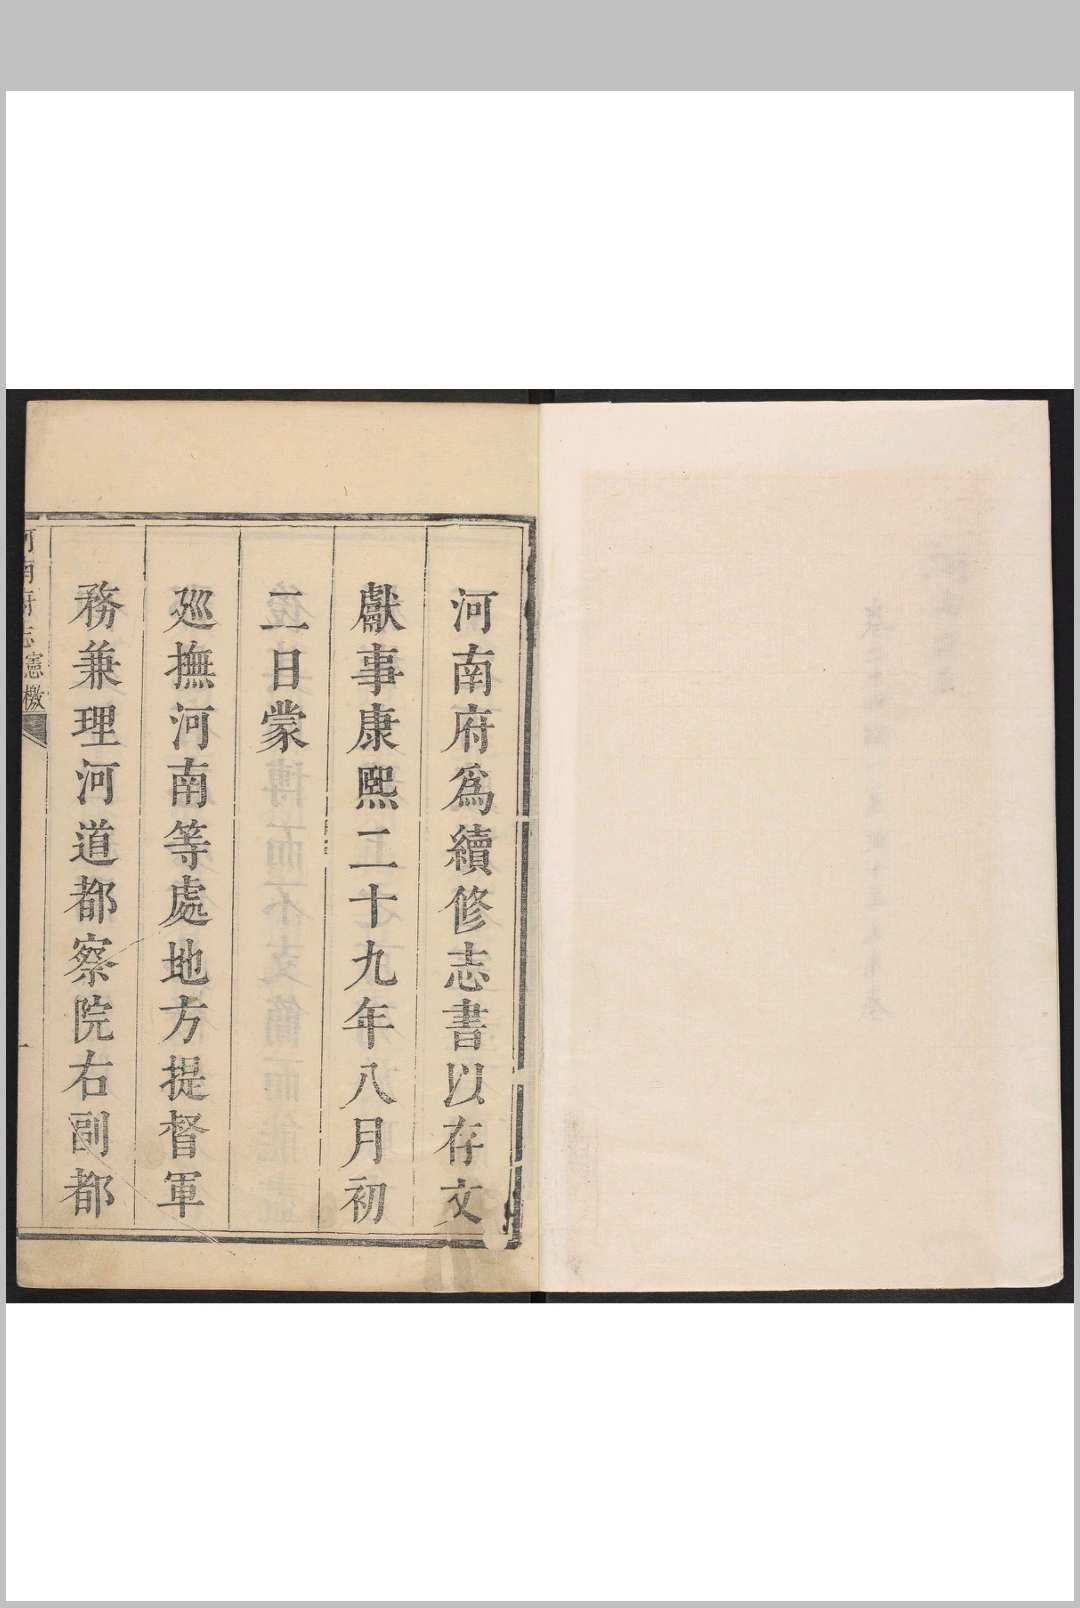 河南府爲續修志書以存文
獻事康熙二十九年八月初
二日蒙
廵撫河南等處地方提督軍
務兼理河道都察院右副都
河南府志憲檄